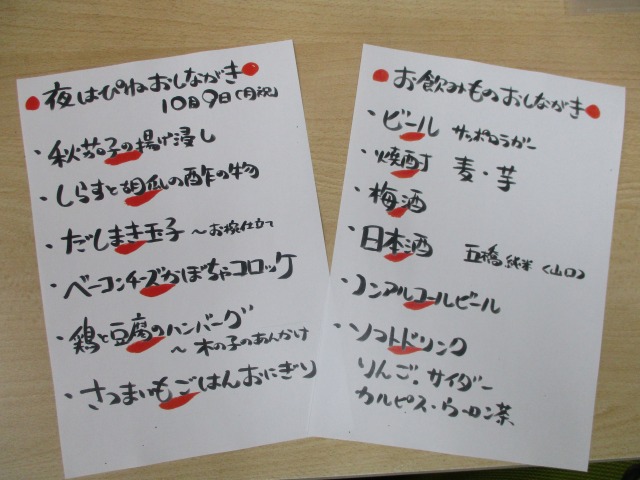 夜はぴねおしながき
10月9日(月祝)
・秋茄子の揚げ浸し
・しらすと胡瓜の酢の物
・だしまき玉子 ～お椀仕立て
・ベーコンチーズかぼちゃコロッケ
・鶏と豆腐のハンバーグ
～木の子のあんかけ
・さつまいもごはんおにぎり
お飲みものおしながき
・ビール サッポロラガー
・焼酎 麦・芋
・梅酒
・日本酒 五橋 純米 〈山口〉
・ノンアルコールビール
・ソフトドリンク
りんご・サイダー
カルピス・ウーロン茶